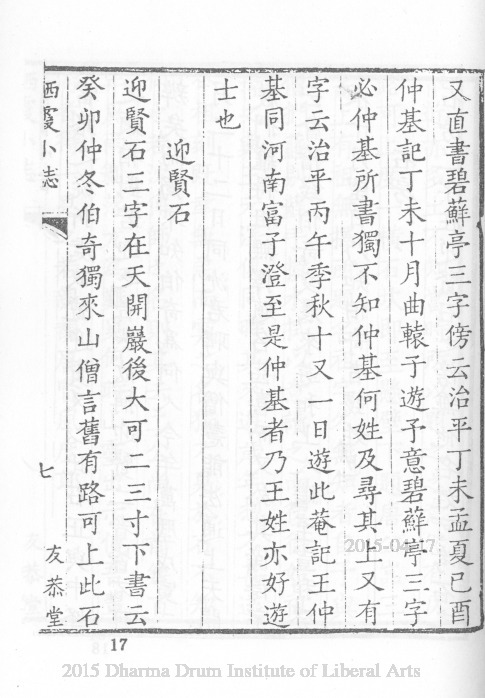 又直書碧蘚亭三字傍云治平丁未孟夏已酉
仲基記丁未十月曲轅子遊予意碧蘚亭三字
必仲基所書獨不知仲基何姓及尋其上又有
字云治平丙午季秋十又一日遊此菴記王仲
基同河南富子澄至是仲基者乃王姓亦好遊
士也
迎賢石
迎賢石三字在天開巖後大可二三寸下書云
癸卯仲冬伯奇獨來山僧言舊有路可上此石
栖霞小志
七
友恭堂
17
2015-04-17
2015 Dharma Drum Institute of Liberal Arts